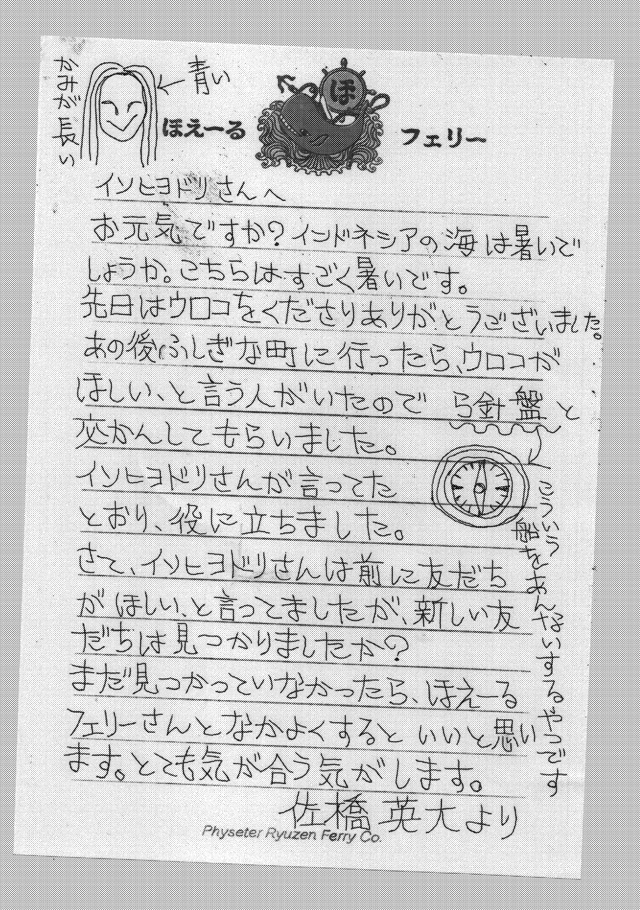 かみが長い
青い
ほえーる
ほ
フェリー
イソヒヨドリさんへ
お元気ですか?インドネシアの海は暑いで
しょうか。こちらはすごく暑いです。
先日はウロコをくださりありがとうございました。
あの後ふしぎな町に行ったら、ウロコが
ほしい、と言う人がいたので ら針盤と
交かんしてもらいました。
イソヒヨドリさんが言ってた
とおり、役に立ちました。
さて、イソヒヨドリさんは前に友だち
がほしい、と言ってましたが、新しい友
だちは見つかりましたか?
まだ見つかっていなかったら、ほえーる
フェリーさんとなかよくするといいと思い
ます。とても気が合う気がします。
佐橋 英大より
こういう
船をあんないするやつです
Physeter Ryuzen Ferry Co.